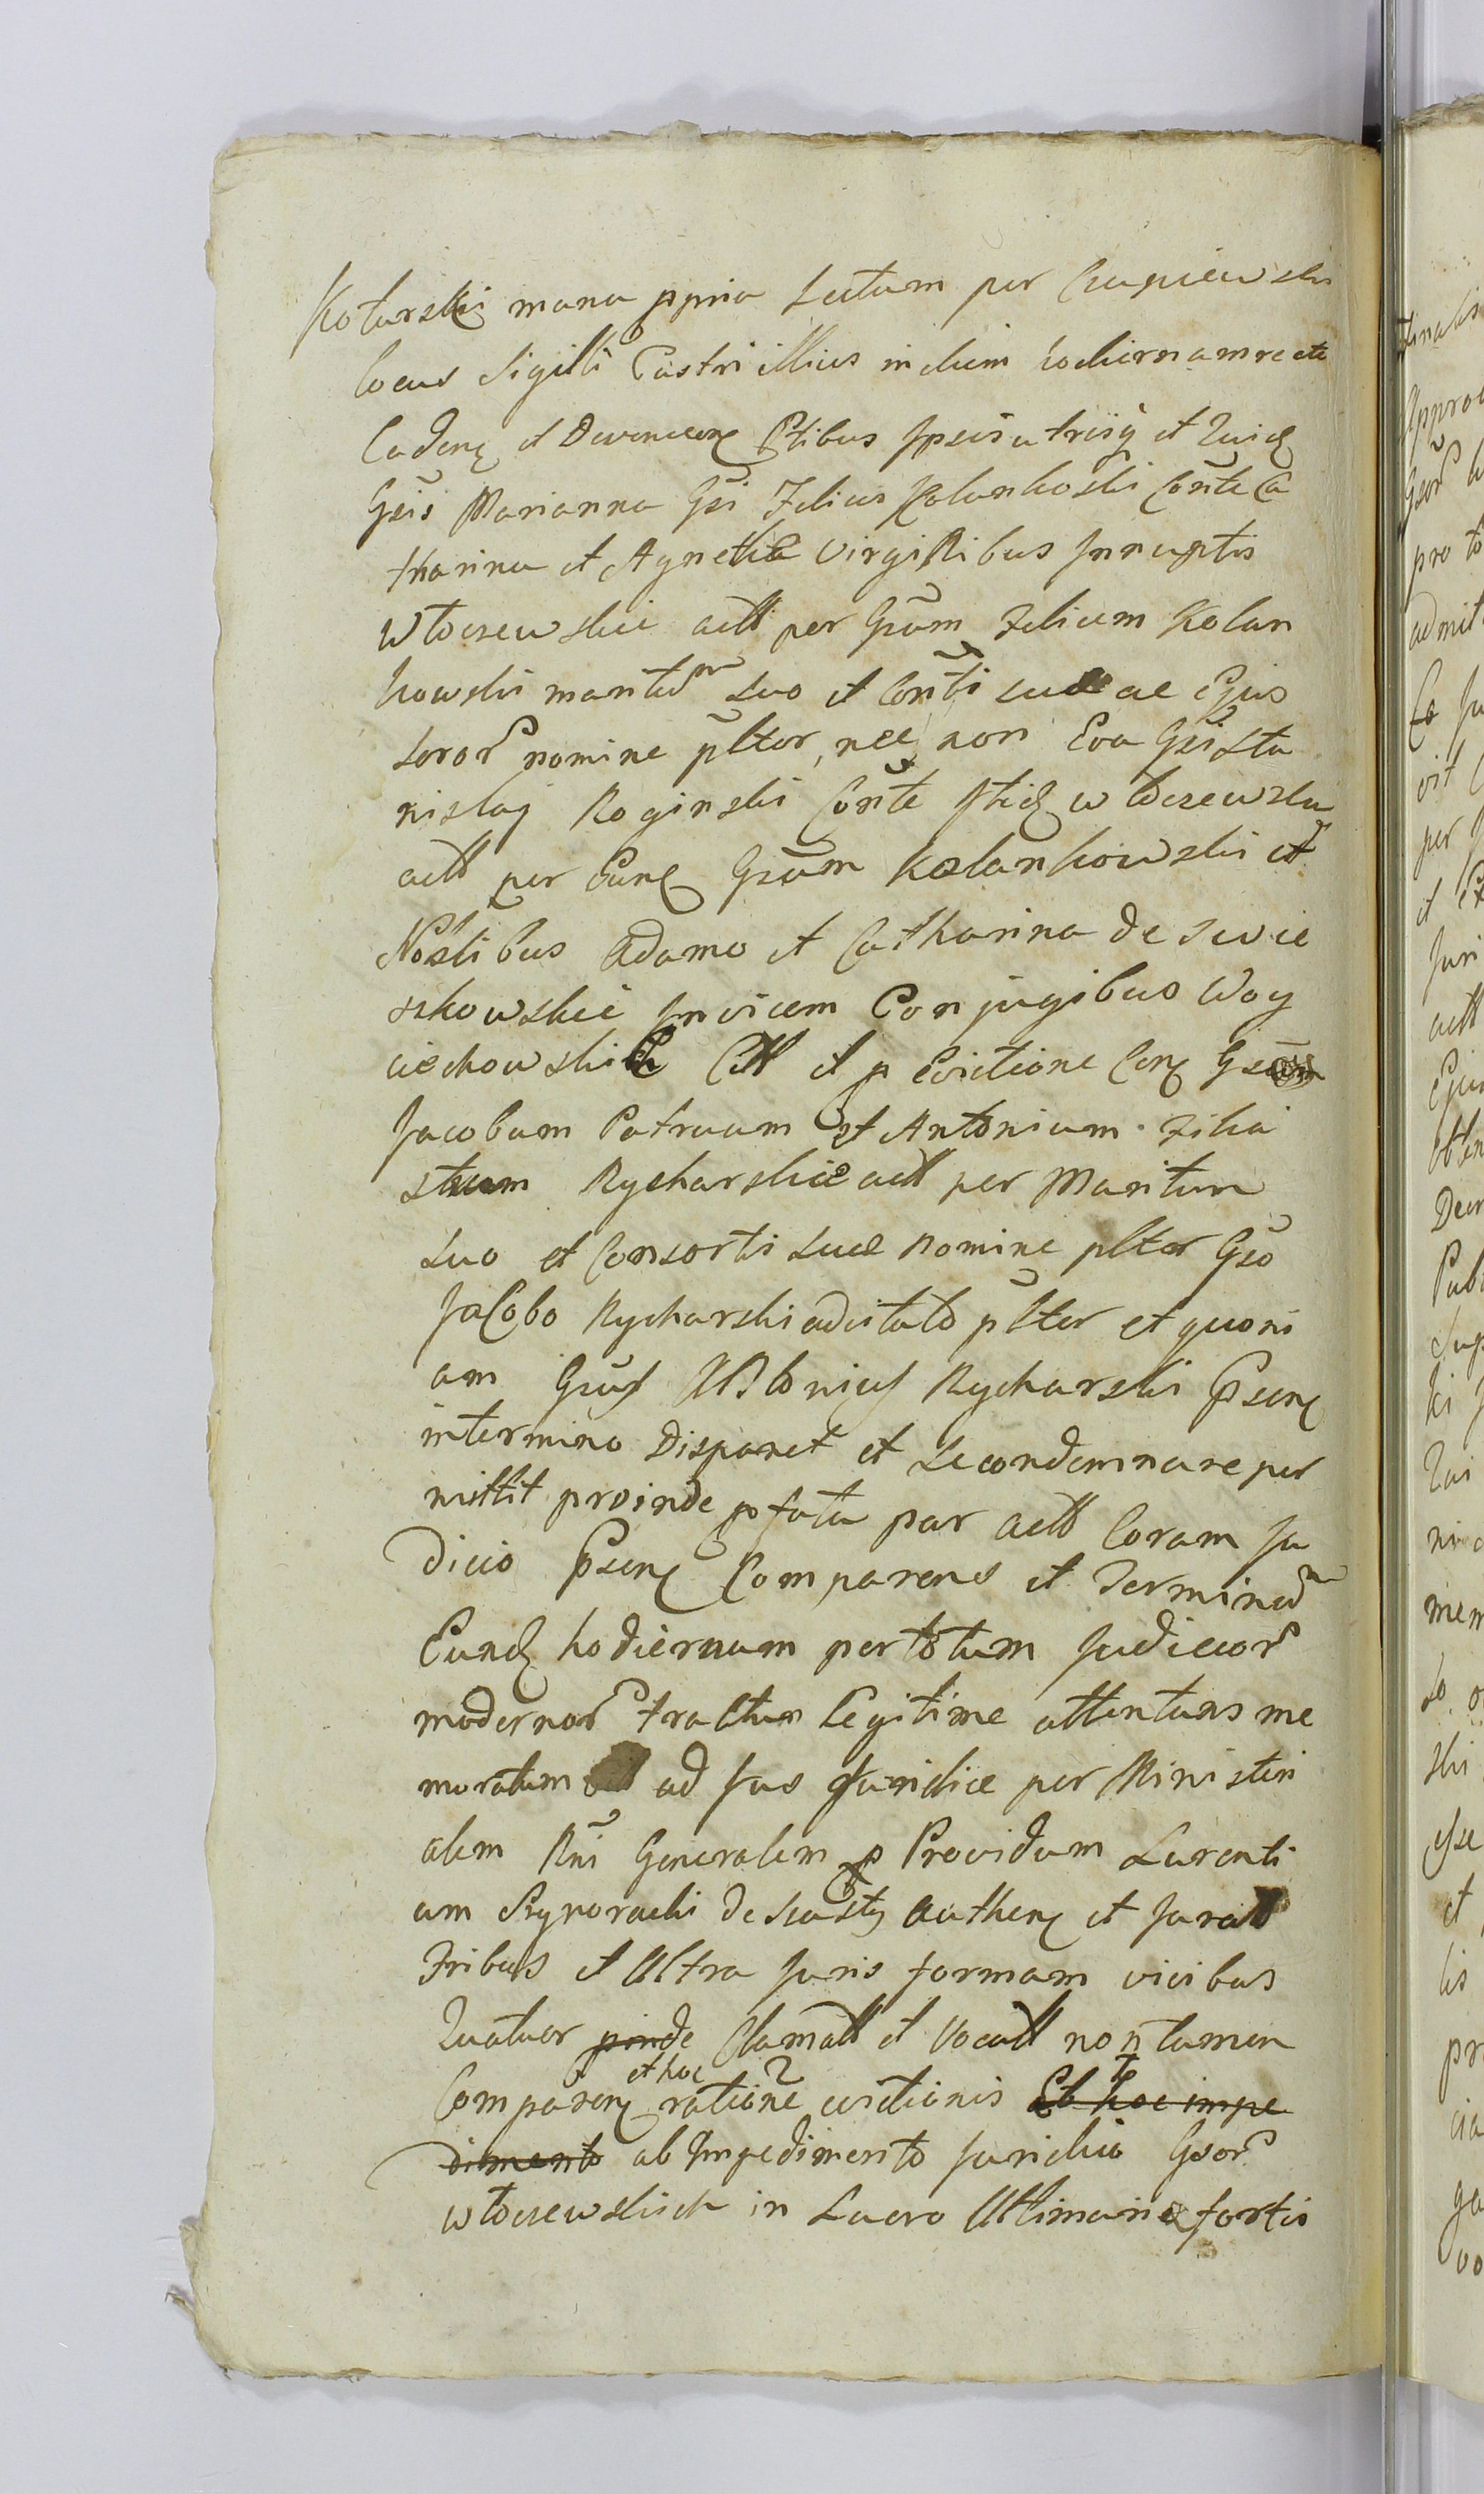 Kotarski manu ppria Lectum per Czupiewski
locus Sigilli Castri illius in diem hodiernam recte
Caden et Devenien Ptibus Ipsis utrisq et quid
Gsis Marianna Gsi Felicis Kolankoski Conte Ca
tharina et Agnethe Virginibus Innuptis
Wtoczewskie actt per Gsum Felicem Kolan
kowski maritum suo et Conti suae ac Ejus
soror nomine pltor, nec non Eva Gsi Sta
nislaj Roginski Conte Itid Wtoczewska
actt per Eund Gsum Kolankowski et
Nostibus Adamo et Catharina de Swie
szkowskie Invicem Conjugibus Woy
ciechowskich Citt et p Evictione Conq Gsum
Jacobum Patruum et Antonium Filia
strum Rycharskie actt per Maritum
suo et Consorti suae nomine pltor Gso
Jacobo Rycharski adcitato pltor et quoni
am Gsus Antonius Rycharski Psenq
in termino Disparet et se condemnare per
mittit proinde pfata par actt Coram Ju
dicio Psenq Comparens et Terminum
Eund hodiernum per totum Judicior
modernor tractum Legitime attentans me
moratum ad Jus Juridice per Ministeri
alem Rni Generalem p Providum Laurenti
um de authenq et Juratt
Tribus et Ultra Juris formam vicibus
quatuor pinde Clamatt et Vocatt non tamen
Comparenq et hoc ratione evictionis Et hoc impe
dimento ab Impedimento Juridico Gsor
Wtoczewskich in Lucro Ultimarie fortis